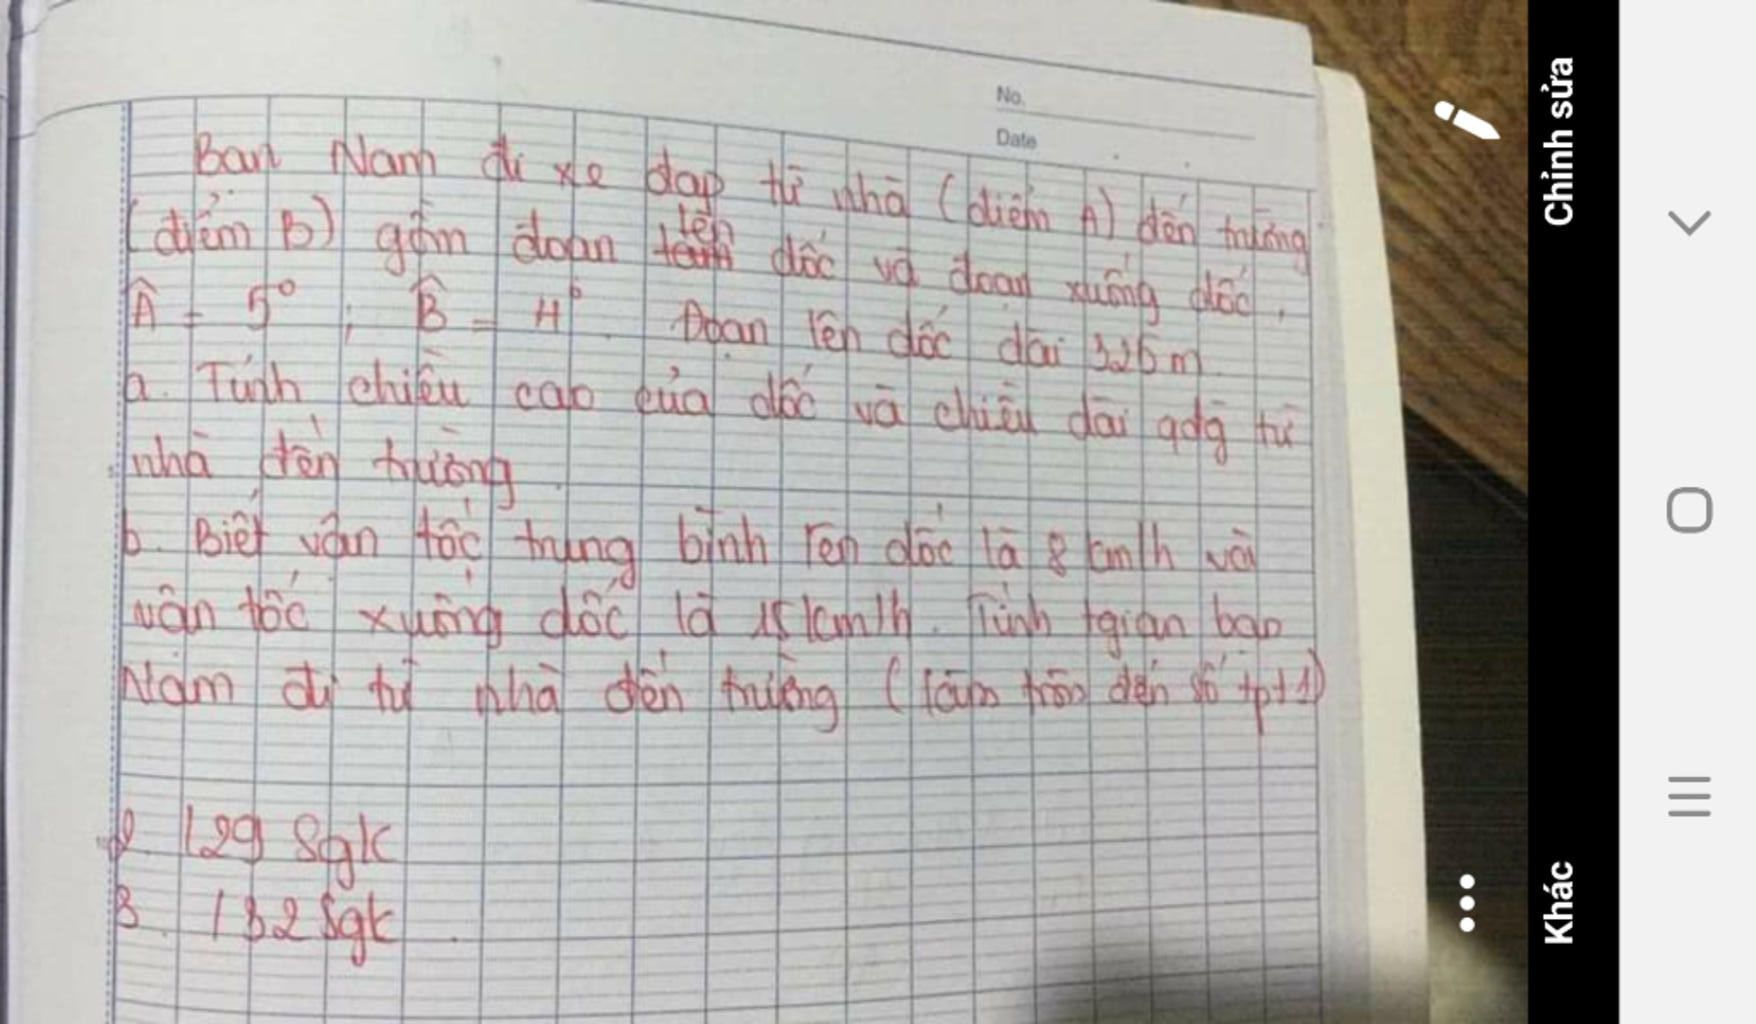 No.
Date
Bạn Nam đi xe đạp từ nhà (điểm A) đến trường
(điểm B) gồm đoạn lên dốc và đoạn xuống dốc.
Â = 5° ; B̂ = 4° . Đoạn lên dốc dài 325 m.
a. Tính chiều cao của dốc và chiều dài qdg từ
nhà đến trường.
b. Biết vận tốc trung bình lên dốc là 8 km/h và
vận tốc xuống dốc là 15 km/h. Tính tgian bạn
Nam đi từ nhà đến trường (làm tròn đến số tpt1)
2. 129 Sgk
3. 132 Sgk.
Chỉnh sửa
Khác